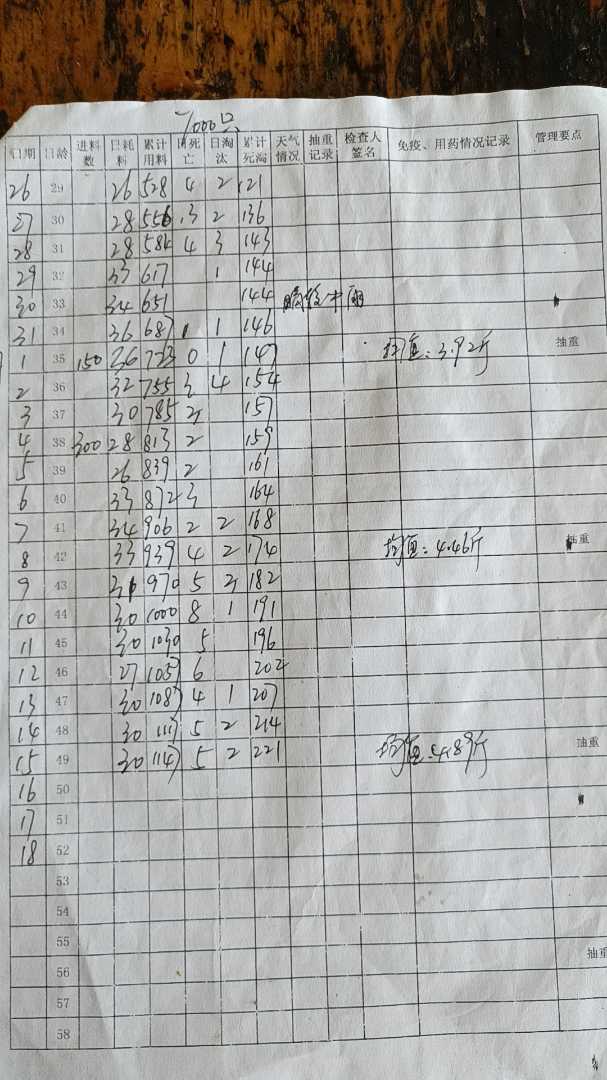 7000只
日期 日龄 进料数 日耗料 累计用料 日死亡 日淘汰 累计死淘 天气情况 抽重记录 检查人签名 免疫、用药情况记录 管理要点
26 29 26 528 4 2 121
27 30 28 556 3 2 136
28 31 28 584 4 3 143
29 32 33 617 1 144
30 33 34 651 144 中雨
31 34 36 687 1 1 146
1 35 150 36 723 0 1 147 均重:3.92斤 抽重
2 36 32 755 3 4 154
3 37 30 785 3 157
4 38 300 28 813 2 159
5 39 26 839 2 161
6 40 33 872 3 164
7 41 34 906 2 2 168
8 42 33 939 4 2 174 均重:4.46斤 抽重
9 43 31 970 5 3 182
10 44 30 1000 8 1 191
11 45 30 1030 5 196
12 46 27 1057 6 202
13 47 30 1087 4 1 207
14 48 30 1117 5 2 214
15 49 30 1147 5 2 221 均重:4.89斤 抽重
16 50
17 51
18 52
53
54
55
56 抽重
57
58